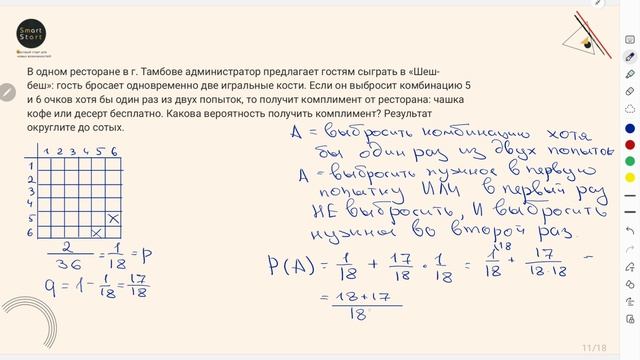 Smart
Start
Быстрый старт для
новых возможностей
В одном ресторане в г. Тамбове администратор предлагает гостям сыграть в «Шеш-
беш»: гость бросает одновременно две игральные кости. Если он выбросит комбинацию 5
и 6 очков хотя бы один раз из двух попыток, то получит комплимент от ресторана: чашка
кофе или десерт бесплатно. Какова вероятность получить комплимент? Результат
округлите до сотых.
A = выбросить комбинацию хотя
бы один раз из двух попыток
A = выбросить нужное в первую
попытку ИЛИ в первый раз
НЕ ВЫбРОСИТЬ, И выбросить
нужное во второй раз.
1 2 3 4 5 6
1
2
3
4
5 x
6 x
2/36 = 1/18 = p
q = 1 - 1/18 = 17/18
P(A) = 1/18 + 17/18 · 1/18 = 1^18/18 + 17/18·18 =
= 18+17/18
11/18